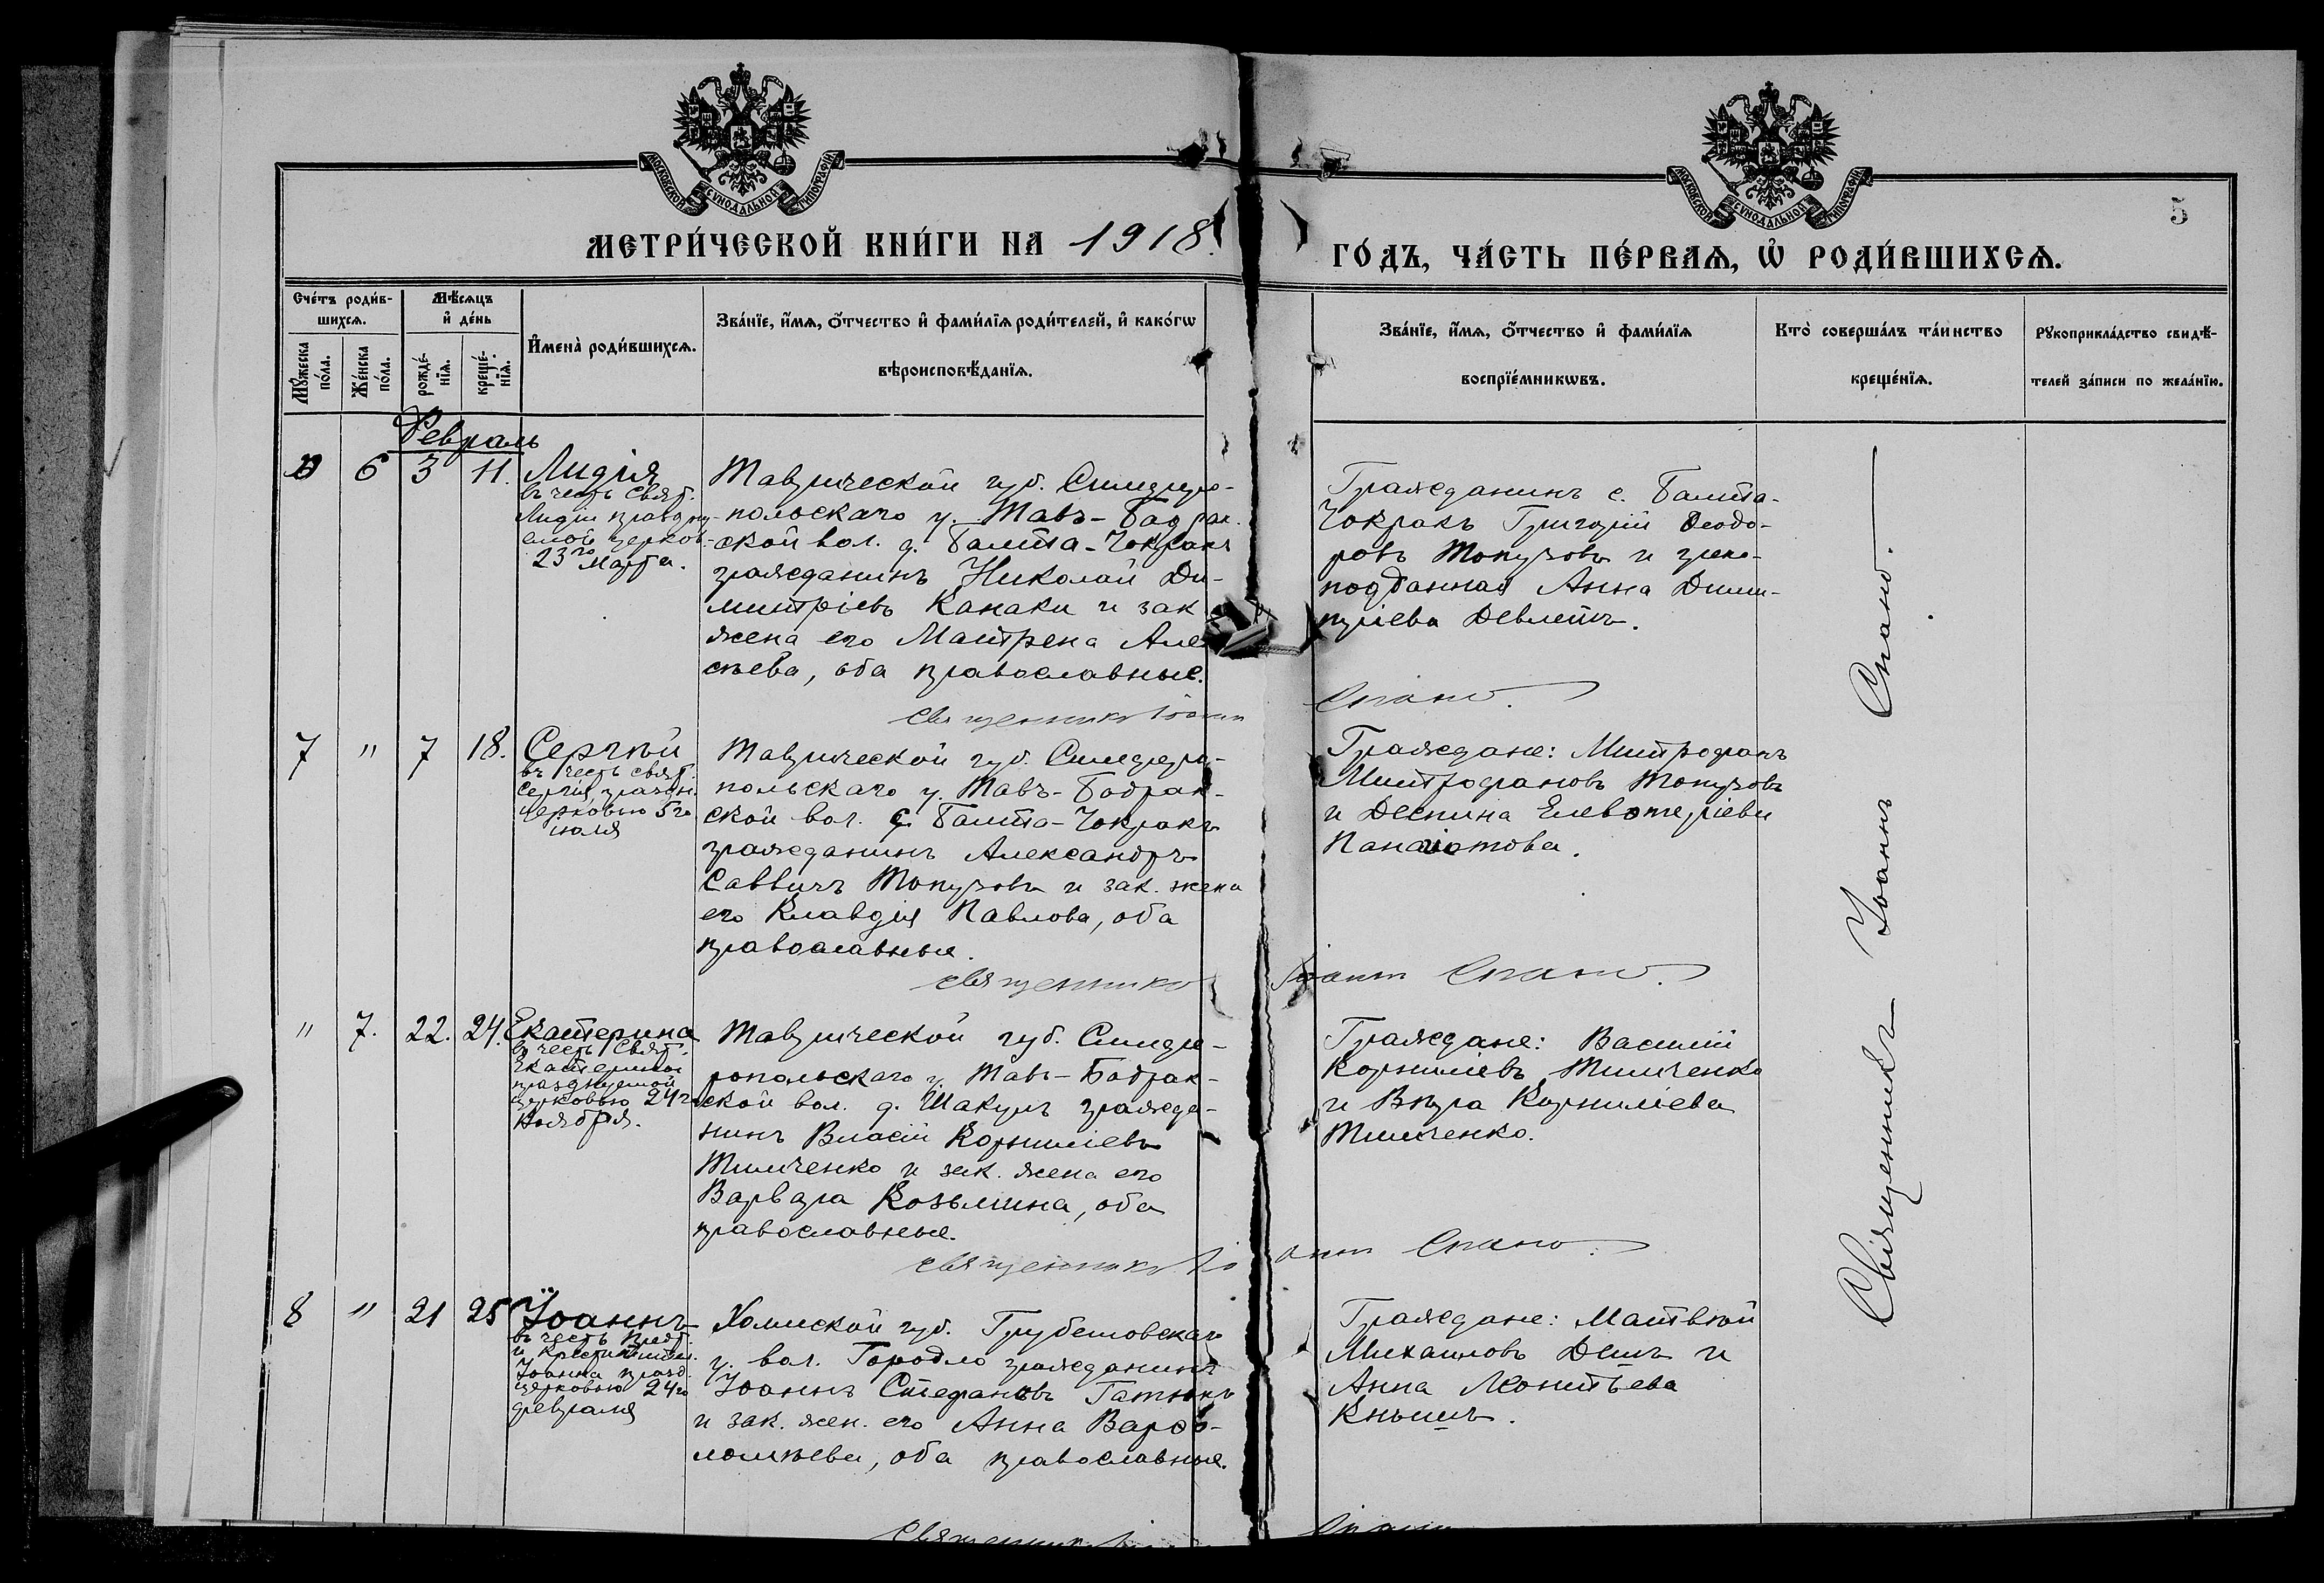 МОСКОВСКОЙ СѴНОДАЛЬНОЙ ТИПОГРАФІИ
МОСКОВСКОЙ СѴНОДАЛЬНОЙ ТИПОГРАФІИ
5
МЕТРИ́ЧЕСКОЙ КНИ́ГИ НА 1918.
ГО́ДЪ, ЧА́СТЬ ПЕ́РВАѦ, Ѡ҆ РОДИ́ВШИХСѦ.
Сче́тъ роди́в-
шихсѧ.
Мѣ́сѧцъ
и҆ де́нь
Мꙋ́жеска
по́ла.
Же́нска
по́ла.
рожде́-
нїѧ.
креще́-
нїѧ.
И҆мена̀ роди́вшихсѧ.
Зва́нїе, и҆́мѧ, ѻ҆́тчество и҆ фами́лїѧ роди́телей, и҆ како́гѡ
вѣроисповѣ́данїѧ.
Зва́нїе, и҆́мѧ, ѻ҆́тчество и҆ фами́лїѧ
воспрїе́мникѡвъ.
Кто̀ соверша́лъ та́инство
креще́нїѧ.
Рꙋкоприкла́дство свидѣ́-
телей за́писи по жела́нїю.
Февраль
6 3 11.
Лидія
въ честь Свят.
Лидіи празднy-
емой церков.
23го Марта.
Таврической губ. Симферо-
польскаго у. Тавъ-Бадрак.
ской вол. д. Балта-Чокракъ
гражданинъ Николай Ди-
митріевъ Канаки и зак.
жена его Матрена Але
сѣева, оба православные.
Гражданинъ с. Балта-
Чокракъ Григорій Ѳеодо-
ровъ Топузовъ и греко-
подданная Анна Дими-
тріева Девлетъ.
Священникъ Іоаннъ Спано.
7 " 7 18.
Сергѣй
въ честь свят.
Сергія, праздн.
церковью 5го
іюля
Таврической губ. Симферо-
польскаго у. Тавъ-Бадрак-
ской вол. д. Балта-Чокракъ
гражданинъ Александръ
Саввичъ Топузовъ и зак. жена
его Клавдія Павлова, оба
православные.
Граждане: Митрофанъ
Митрофановъ Топузовъ
и Деспина Елевтеріева
Панаіотова.
Священникъ Іоаннъ Спано.
" 7. 22. 24.
Екатерина
въ честь Свят.
Екатерины
празднуемой
церковью 24го
Ноября.
Таврической губ. Симфе-
ропольскаго у. Тавъ-Бадрак-
ской вол. д. Шакулъ гражда-
нинъ Власій Корниліевъ
Тимченко и зак. жена его
Варвара Козьмина, оба
православные.
Граждане: Василій
Корниліевъ Тимченко
и Вѣра Корниліева
Тимченко.
Священникъ Іоаннъ Спано.
8 " 21 25
Іоаннъ
въ честь Предт.
и Крестителя
Іоанна празд.
церковью 24го
февраля
Холмской губ. Грубешовскаго
у. вол. Городло гражданинъ
Іоаннъ Стефановъ Гатюкъ
и зак. жен. его Анна Варѳо-
ломѣева, оба православные.
Граждане: Матвѣй
Михаиловъ Демъ и
Анна Леонтьева
Кнышъ.
Священникъ Спано
Священникъ Іоаннъ Спано.